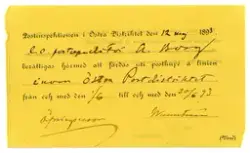 Postinspektionen i Östra Distriktet den 12 maj 1893
e.o. postexpeditör A. Boozy
berättigas härmed att färdas på postkupé å linien
inom Östra Postdistriktet
från och med den 1/6 till och med den 20/6 93